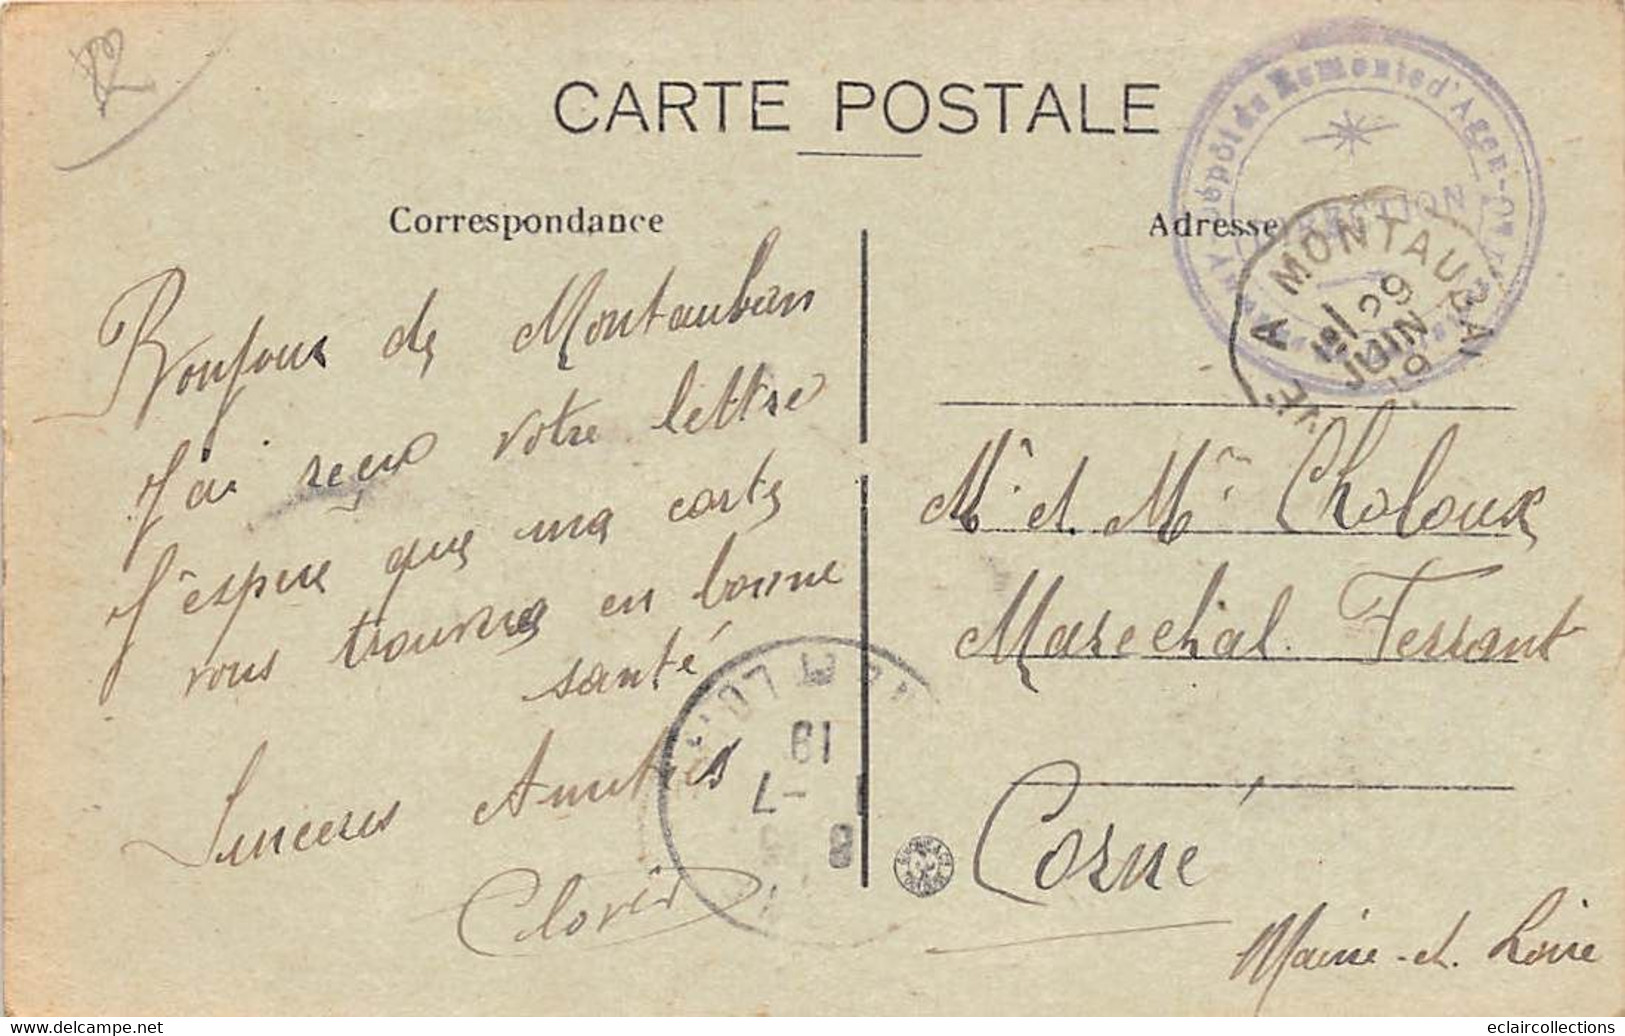 CARTE POSTALE
Correspondance
Adresse
Dépôt de Remonte d'Agen
A MONTAUBAN
1
29
JUIN
19
Bonjour de Montauban
J'ai reçu votre lettre
J'espere que ma carte
vous trouvera en bonne
santé
Sinceres Amitiés
Clovis
Mr et Mme Choloux
Marechal Ferrant
Corné
Maine-et-Loire
19
-7
eclaircollections